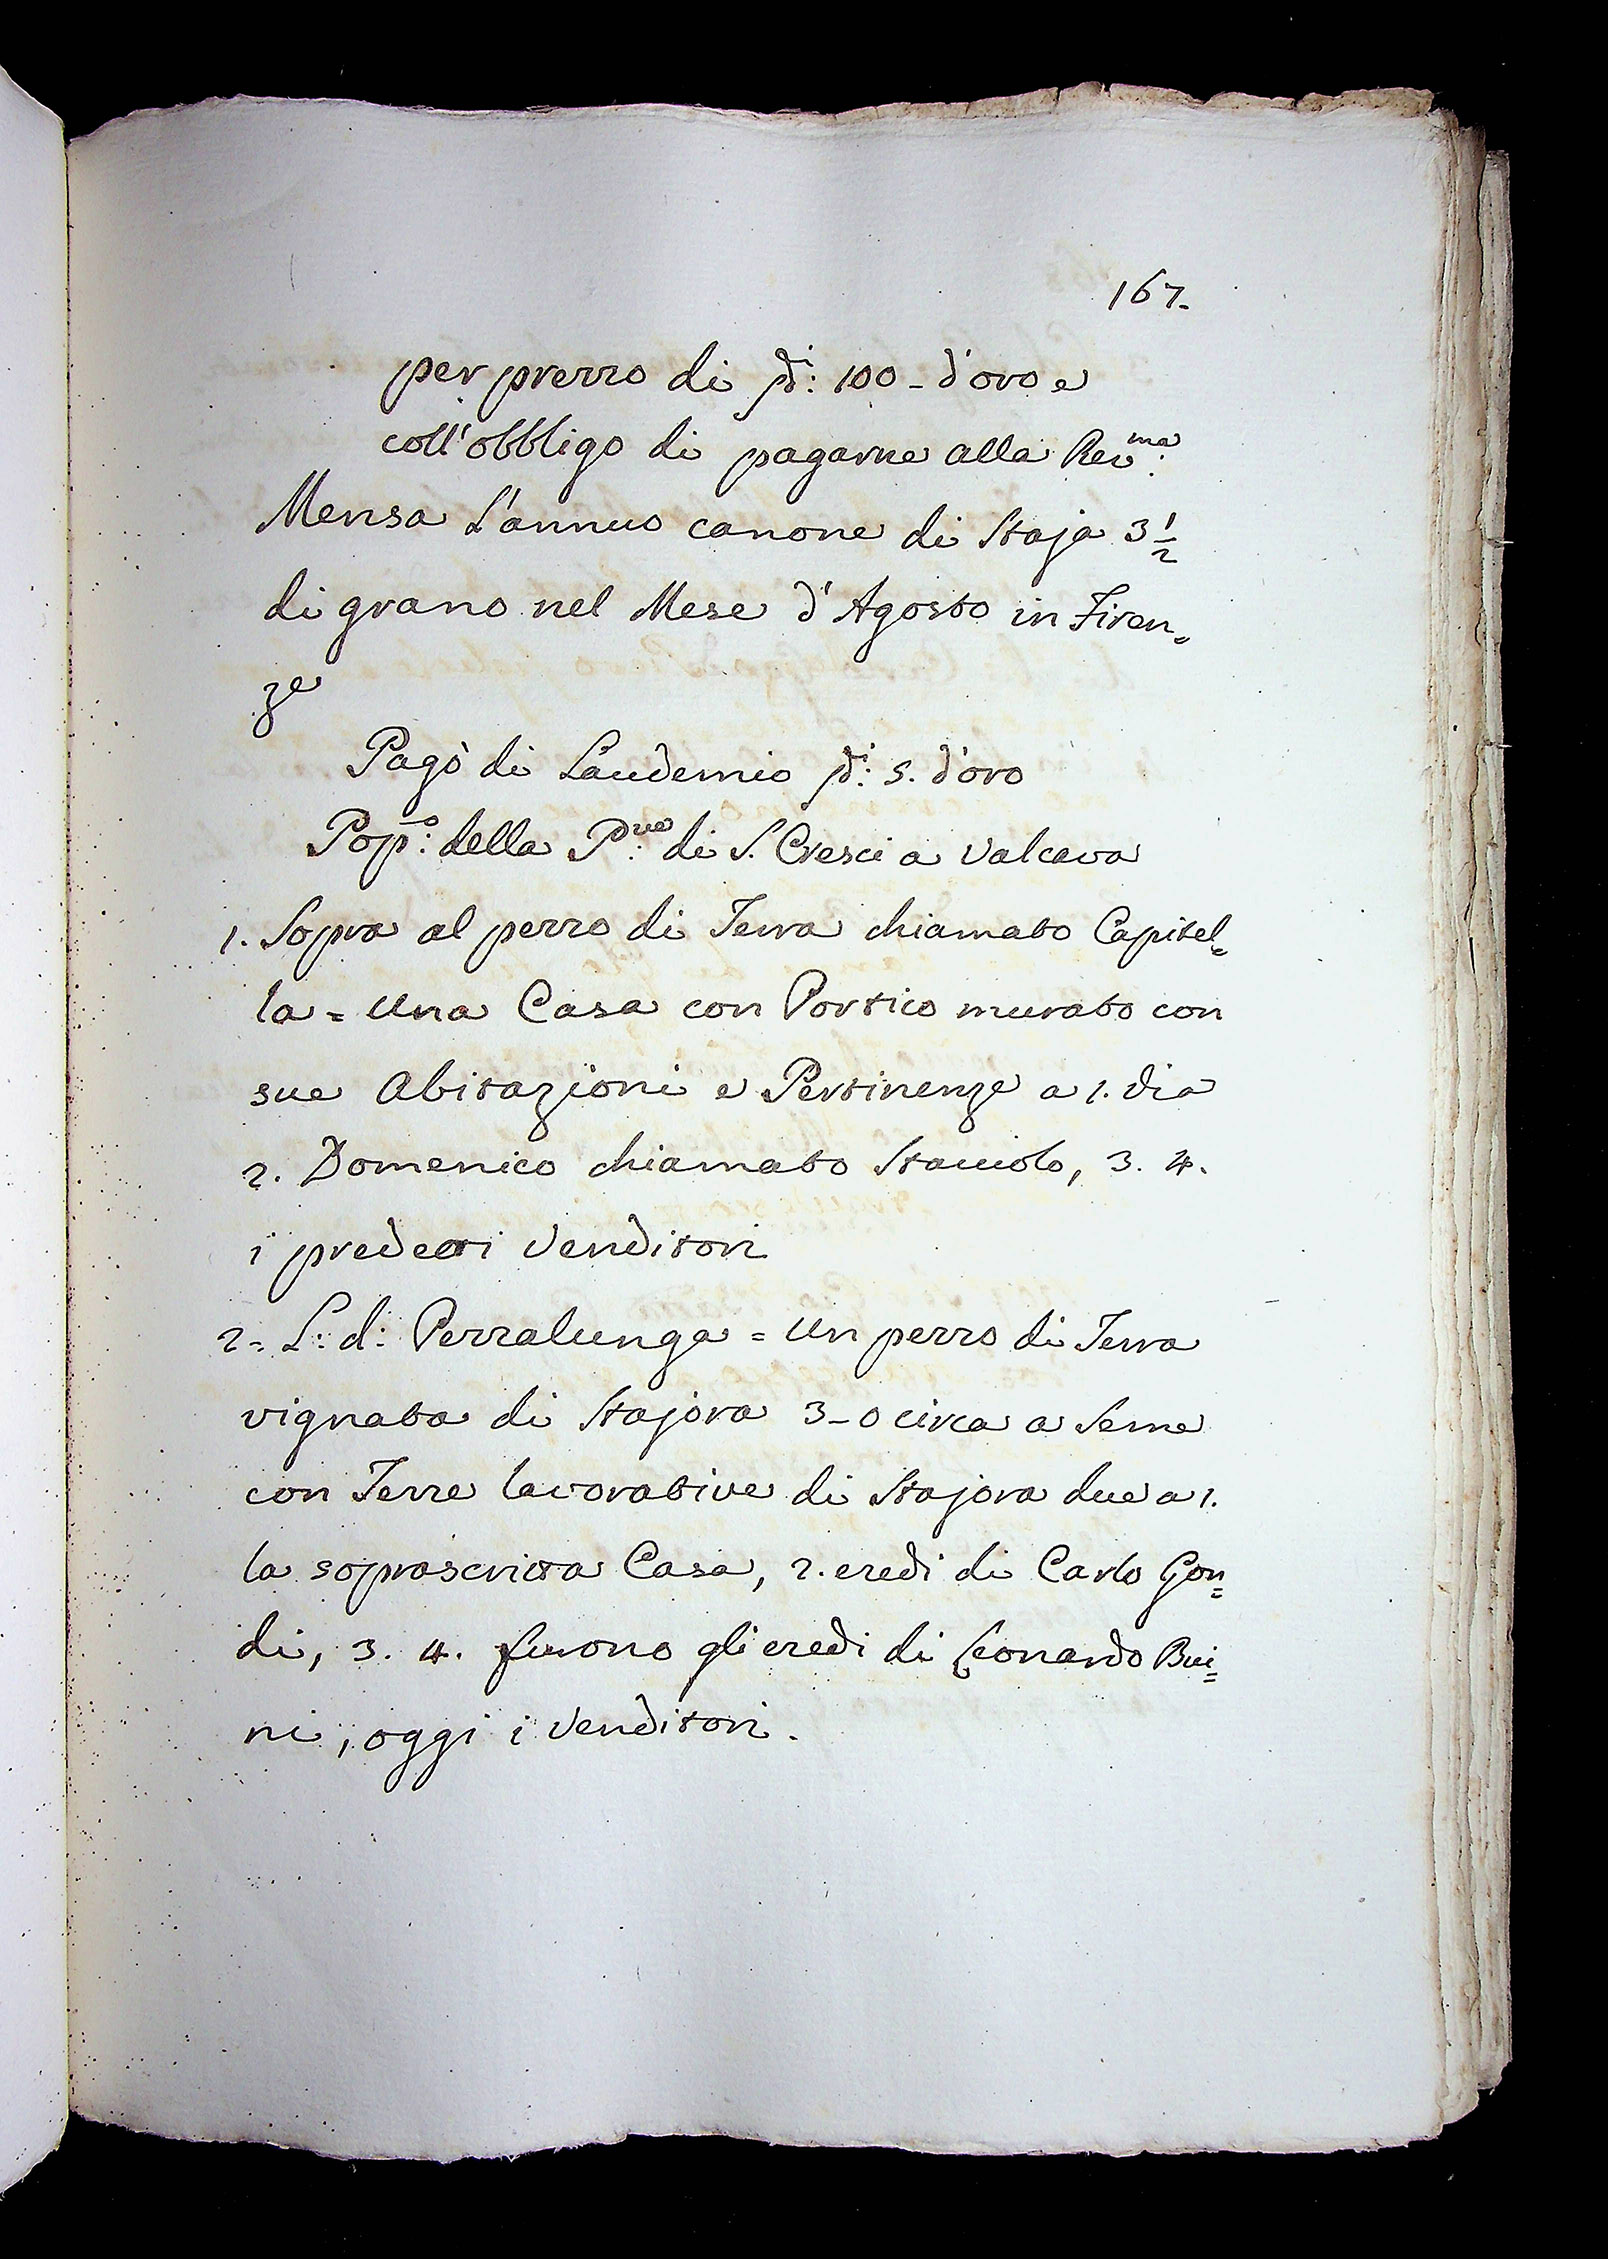 167.
per prezzo di fi: 100 - d'oro e
coll'obbligo di pagarne alla Rev:ma
Mensa L'annuo canone di Staja 3 1/2
di grano nel Mese d'Agosto in Firen=
ze
Pagò di Laudemio fi: 5. d'oro
Pop:o della P:ve di S. Cresci a Valcava
1. Sopra al pezzo di Terra chiamato Capitel=
la = Una Casa con Portico murato con
sue Abitazioni e Pertinenze a 1. Via
2. Domenico chiamato Stacciolo, 3. 4.
i predetti Venditori
2 = L: d: Pezzalunga = Un pezzo di Terra
vignata di Stajora 3 - 0 circa a Seme
con Terre lavorative di Stajora due a 1.
la soprascritta Casa, 2. eredi di Carlo Gon=
di, 3. 4. furono gli eredi di Leonardo Bui=
ni, oggi i Venditori.